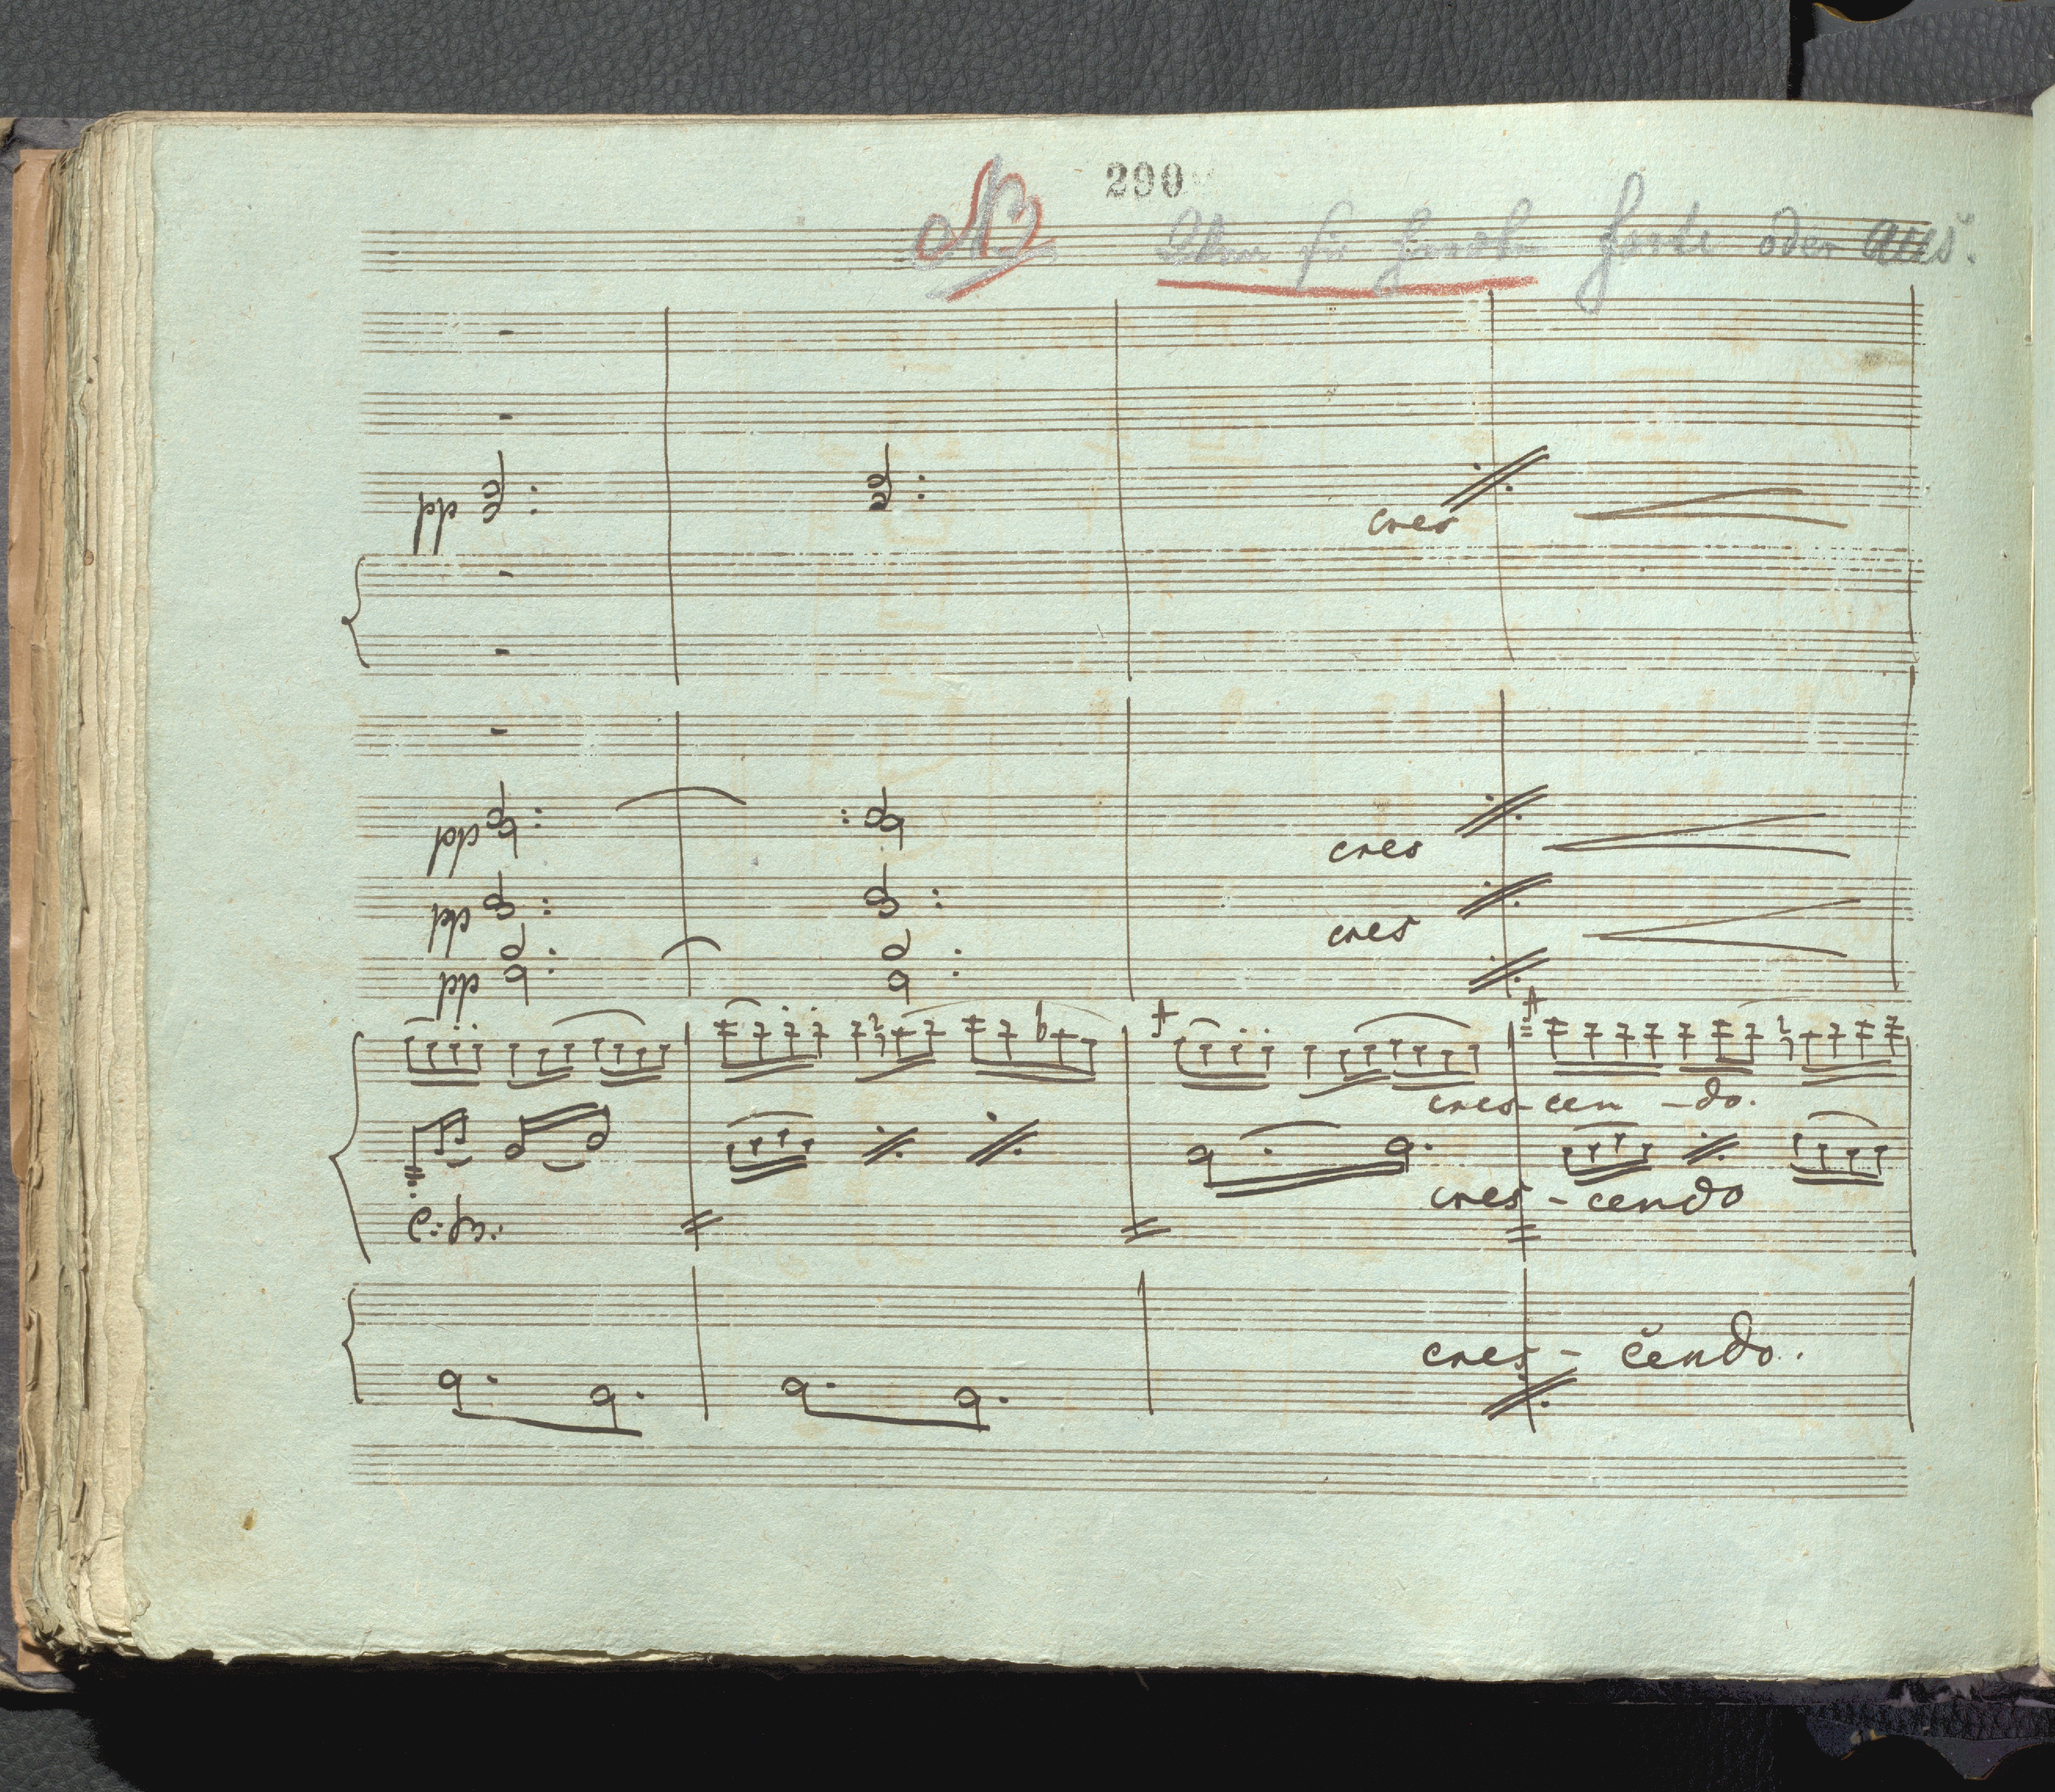 290
NB forte oder aus.
pp
cres
pp
cres
pp
cres
pp
cres-cen-do.
cres-cendo
C: B:
cres-cendo.